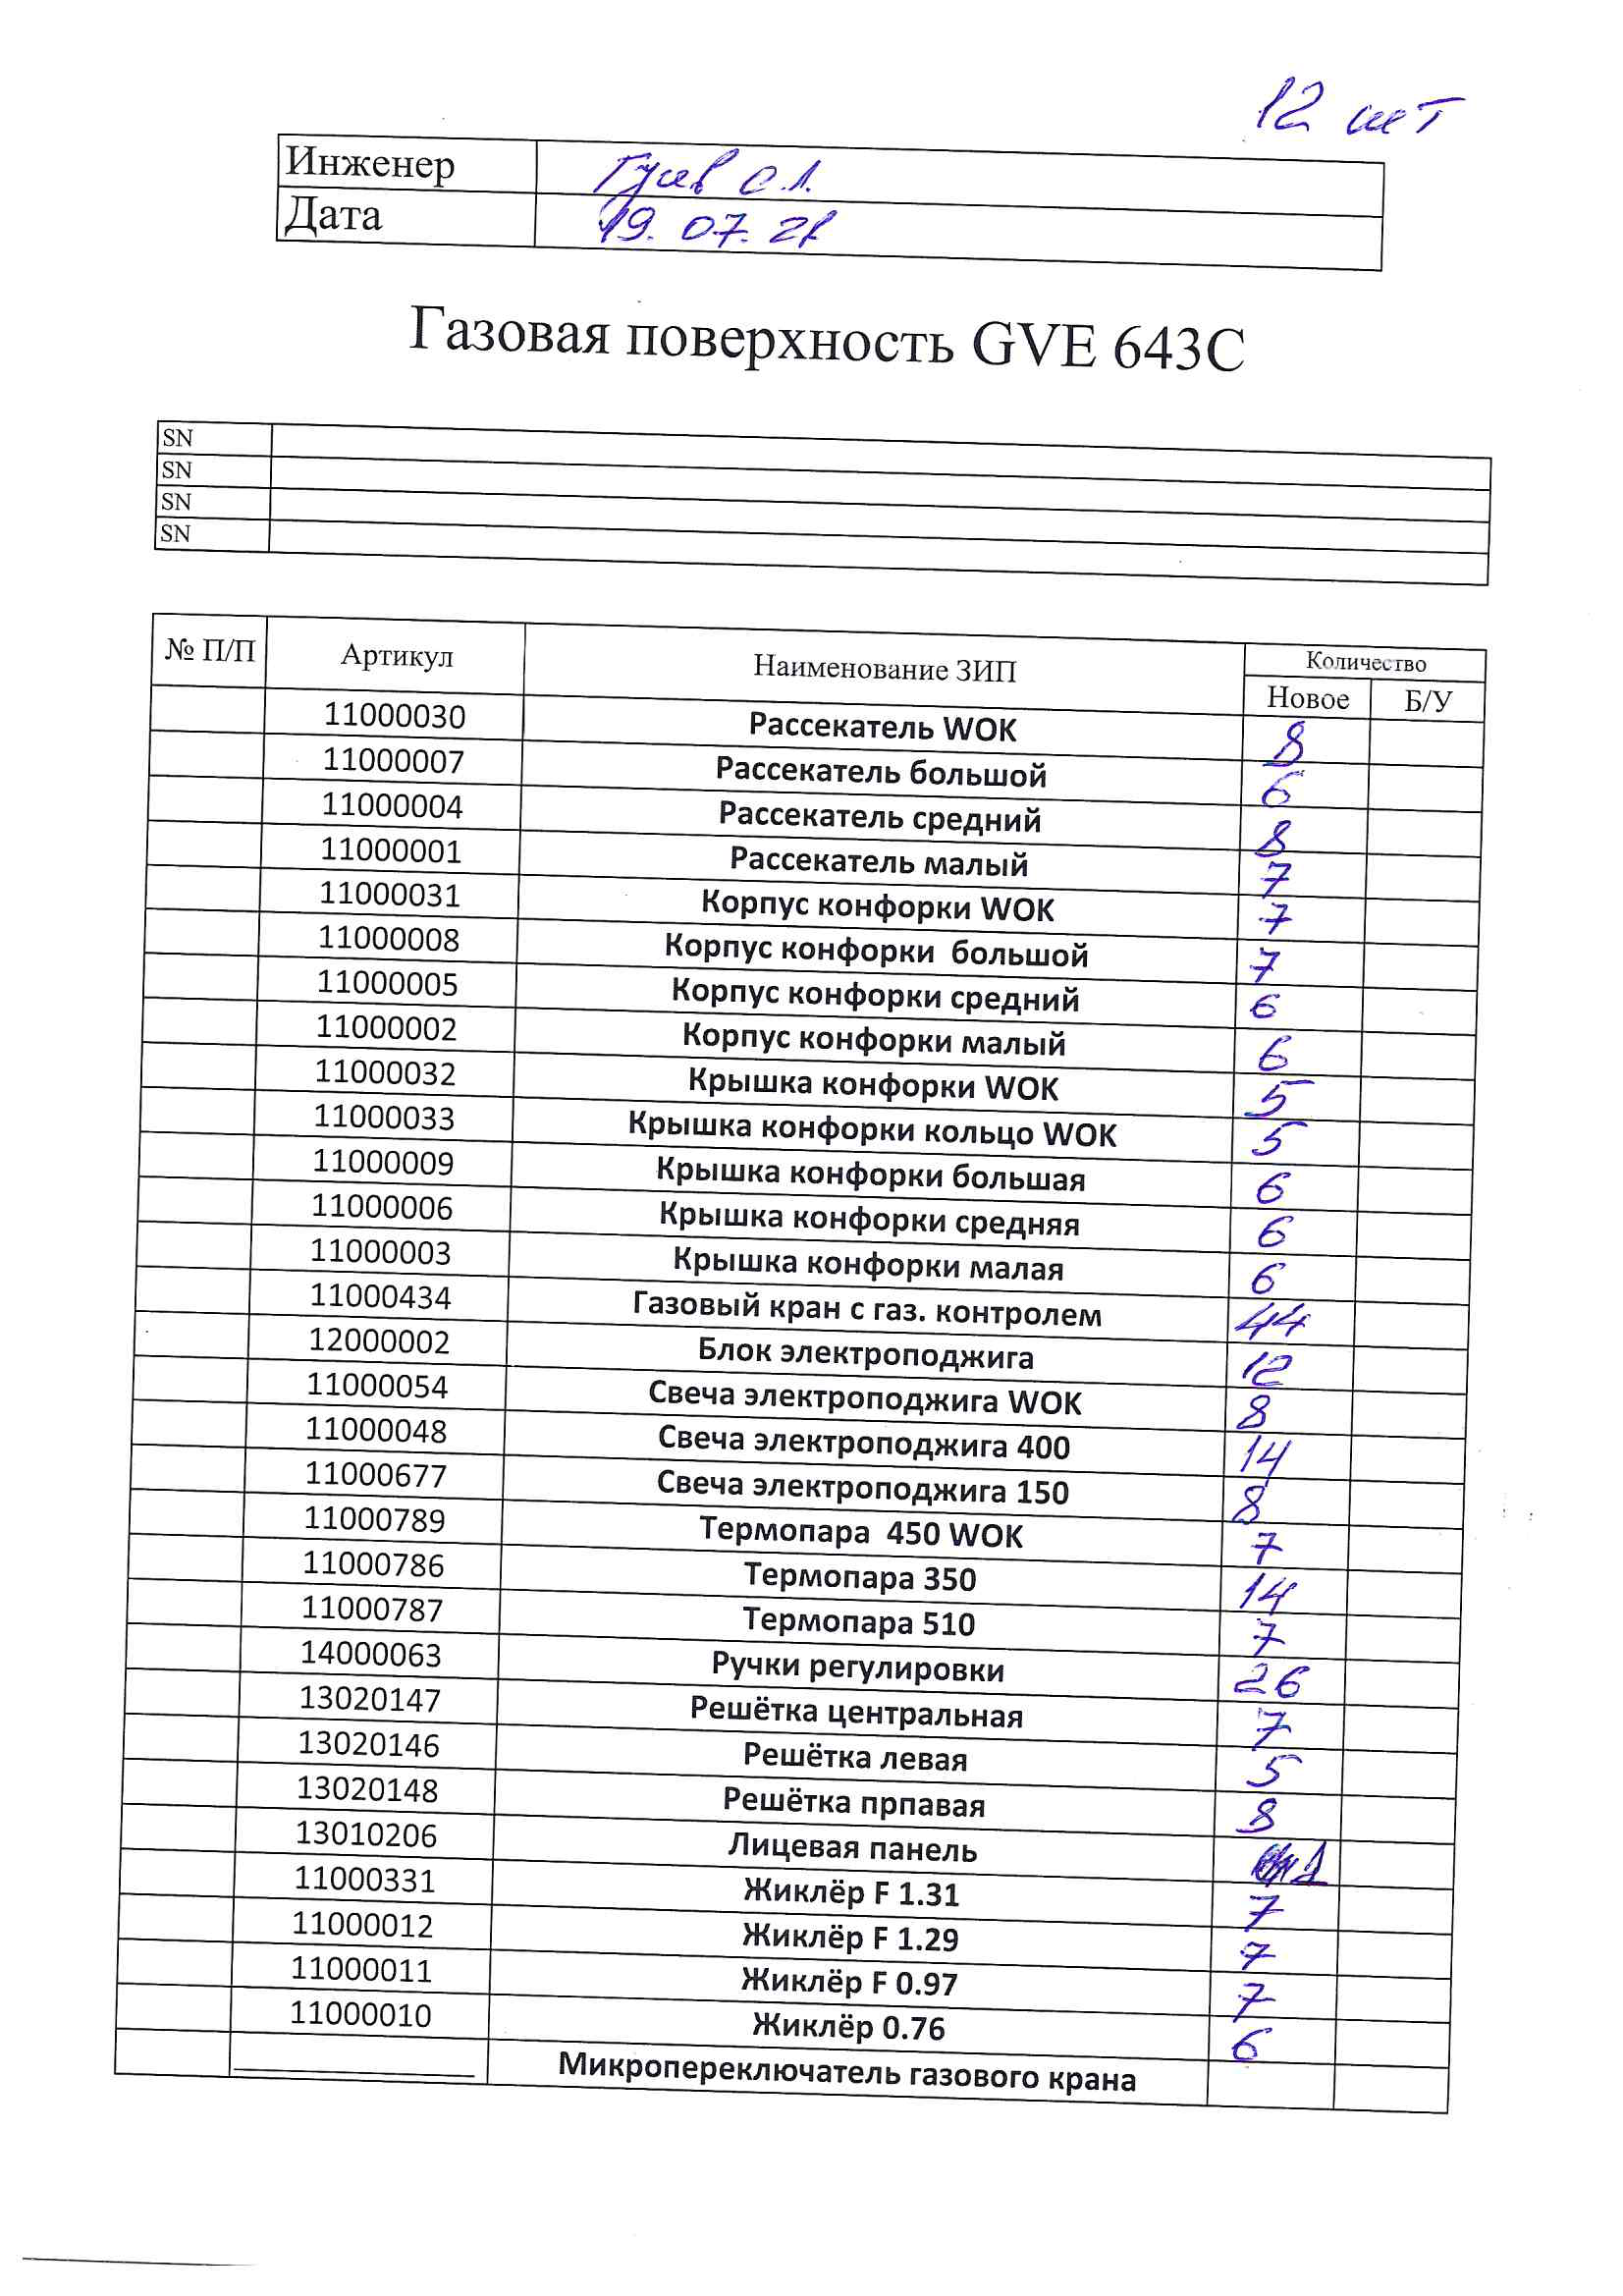 12 шт
Инженер Гусев О.Л.
Дата 19.07.21
Газовая поверхность GVE 643C
SN
SN
SN
SN
№ П/П Артикул Наименование ЗИП Количество
Новое Б/У
11000030 Рассекатель WOK 8
11000007 Рассекатель большой 6
11000004 Рассекатель средний 8
11000001 Рассекатель малый 7
11000031 Корпус конфорки WOK 7
11000008 Корпус конфорки большой 7
11000005 Корпус конфорки средний 6
11000002 Корпус конфорки малый 6
11000032 Крышка конфорки WOK 5
11000033 Крышка конфорки кольцо WOK 5
11000009 Крышка конфорки большая 6
11000006 Крышка конфорки средняя 6
11000003 Крышка конфорки малая 6
11000434 Газовый кран с газ. контролем 44
12000002 Блок электроподжига 12
11000054 Свеча электроподжига WOK 8
11000048 Свеча электроподжига 400 14
11000677 Свеча электроподжига 150 8
11000789 Термопара 450 WOK 7
11000786 Термопара 350 14
11000787 Термопара 510 7
14000063 Ручки регулировки 26
13020147 Решётка центральная 7
13020146 Решётка левая 5
13020148 Решётка прпавая 8
13010206 Лицевая панель 1
11000331 Жиклёр F 1.31 7
11000012 Жиклёр F 1.29 7
11000011 Жиклёр F 0.97 7
11000010 Жиклёр 0.76 6
Микропереключатель газового крана